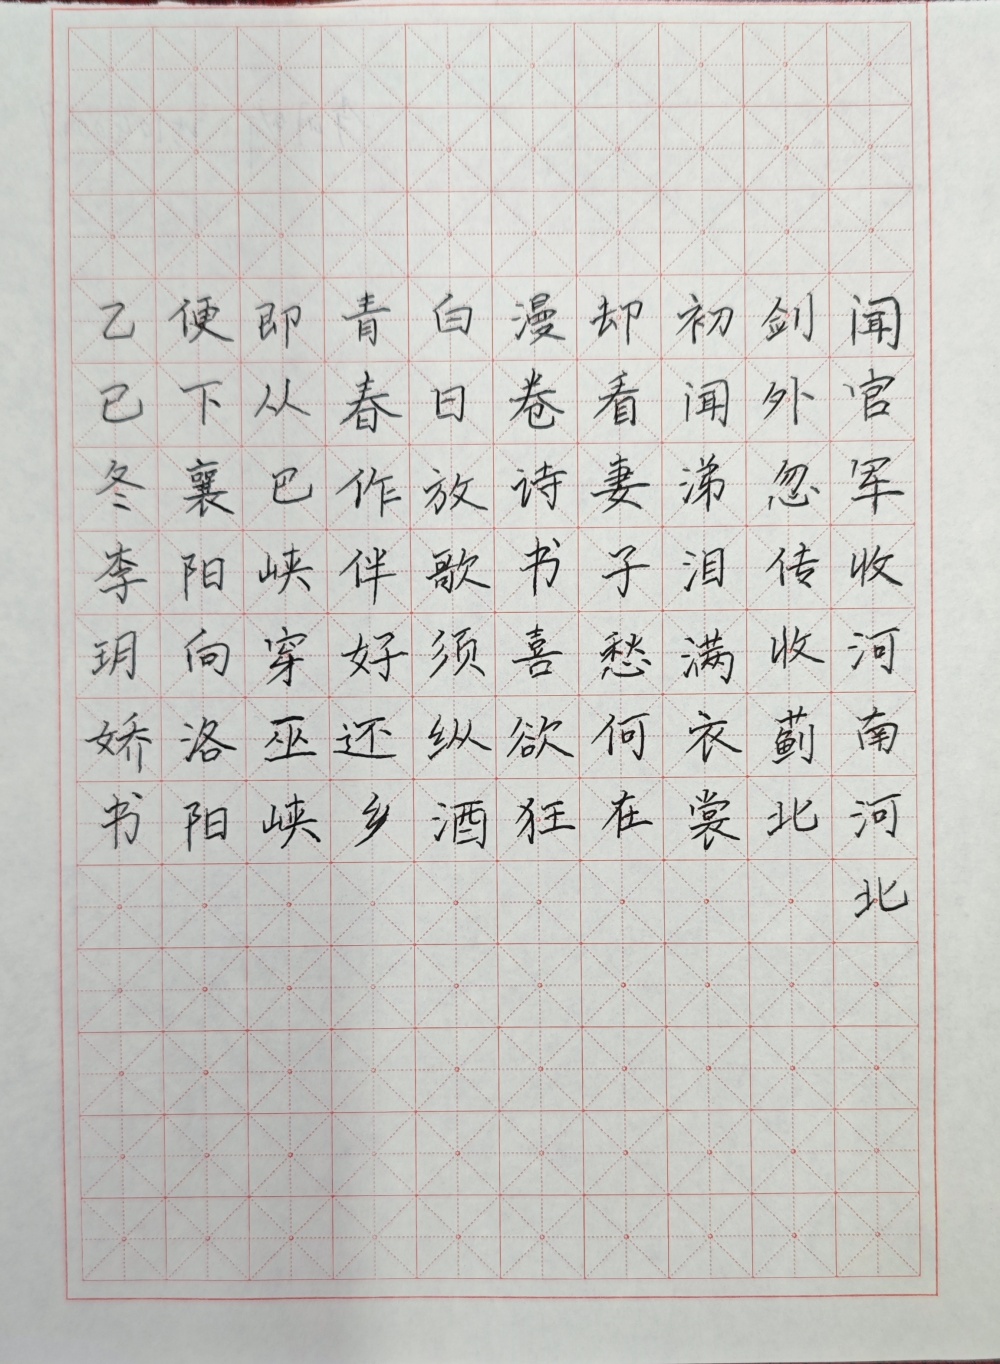 闻官军收河南河北
剑外忽传收蓟北
初闻涕泪满衣裳
却看妻子愁何在
漫卷诗书喜欲狂
白日放歌须纵酒
青春作伴好还乡
即从巴峡穿巫峡
便下襄阳向洛阳
乙巳冬李玥娇书